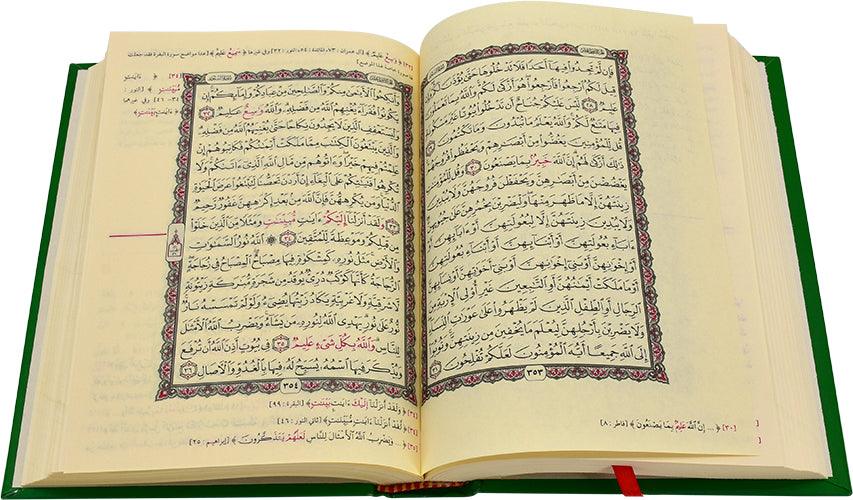 فَإِن لَّمْ تَجِدُوا۟ فِيهَآ أَحَدًا فَلَا تَدْخُلُوهَا حَتَّىٰ يُؤْذَنَ لَكُمْ
قِيلَ لَكُمُ ٱرْجِعُوا۟ فَٱرْجِعُوا۟ هُوَ أَزْكَىٰ لَكُمْ وَٱللَّهُ بِمَا تَعْمَلُونَ
٢٨ لَّيْسَ عَلَيْكُمْ جُنَاحٌ أَن تَدْخُلُوا۟ بُيُوتًا غَيْرَ
فِيهَا مَتَٰعٌ لَّكُمْ وَٱللَّهُ يَعْلَمُ مَا تُبْدُونَ وَمَا تَكْتُمُونَ
قُل لِّلْمُؤْمِنِينَ يَغُضُّوا۟ مِنْ أَبْصَٰرِهِمْ وَيَحْفَظُوا۟ فُرُوجَهُمْ
ذَٰلِكَ أَزْكَىٰ لَهُمْ إِنَّ ٱللَّهَ خَبِيرٌۢ بِمَا يَصْنَعُونَ ٣٠ وَقُل
يَغْضُضْنَ مِنْ أَبْصَٰرِهِنَّ وَيَحْفَظْنَ فُرُوجَهُنَّ وَلَا يُبْدِينَ
زِينَتَهُنَّ إِلَّا مَا ظَهَرَ مِنْهَا وَلْيَضْرِبْنَ بِخُمُرِهِنَّ عَلَىٰ جُيُوبِهِنَّ
وَلَا يُبْدِينَ زِينَتَهُنَّ إِلَّا لِبُعُولَتِهِنَّ أَوْ ءَابَآئِهِنَّ أَوْ
ءَابَآءِ بُعُولَتِهِنَّ أَوْ أَبْنَآئِهِنَّ أَوْ أَبْنَآءِ بُعُولَتِهِنَّ
أَوْ إِخْوَٰنِهِنَّ أَوْ بَنِىٓ إِخْوَٰنِهِنَّ أَوْ بَنِىٓ أَخَوَٰتِهِنَّ أَوْ نِسَآئِهِنَّ
أَوْ مَا مَلَكَتْ أَيْمَٰنُهُنَّ أَوِ ٱلتَّٰبِعِينَ غَيْرِ أُو۟لِى ٱلْإِرْبَةِ مِنَ
ٱلرِّجَالِ أَوِ ٱلطِّفْلِ ٱلَّذِينَ لَمْ يَظْهَرُوا۟ عَلَىٰ عَوْرَٰتِ ٱلنِّسَآءِ
وَلَا يَضْرِبْنَ بِأَرْجُلِهِنَّ لِيُعْلَمَ مَا يُخْفِينَ مِن زِينَتِهِنَّ وَتُوبُوٓا۟
إِلَى ٱللَّهِ جَمِيعًا أَيُّهَ ٱلْمُؤْمِنُونَ لَعَلَّكُمْ تُفْلِحُونَ ٣١
٣٥٣
[٣٠] ﴿ ... إِنَّ ٱللَّهَ عَلِيمٌۢ بِمَا يَصْنَعُونَ ﴾ [فاطر : ٨]
وَأَنكِحُوا۟ ٱلْأَيَٰمَىٰ مِنكُمْ وَٱلصَّٰلِحِينَ مِنْ عِبَادِكُمْ وَإِمَآئِكُمْ إِن
يَكُونُوا۟ فُقَرَآءَ يُغْنِهِمُ ٱللَّهُ مِن فَضْلِهِۦ وَٱللَّهُ وَٰسِعٌ عَلِيمٌ ٣٢
وَلْيَسْتَعْفِفِ ٱلَّذِينَ لَا يَجِدُونَ نِكَاحًا حَتَّىٰ يُغْنِيَهُمُ ٱللَّهُ مِن فَضْلِهِۦ
وَٱلَّذِينَ يَبْتَغُونَ ٱلْكِتَٰبَ مِمَّا مَلَكَتْ أَيْمَٰنُكُمْ فَكَاتِبُوهُمْ إِنْ
عَلِمْتُمْ فِيهِمْ خَيْرًا وَءَاتُوهُم مِّن مَّالِ ٱللَّهِ ٱلَّذِىٓ ءَاتَىٰكُمْ وَلَا
تُكْرِهُوا۟ فَتَيَٰتِكُمْ عَلَى ٱلْبِغَآءِ إِنْ أَرَدْنَ تَحَصُّنًا لِّتَبْتَغُوا۟ عَرَضَ ٱلْحَيَوٰةِ
ٱلدُّنْيَا وَمَن يُكْرِههُّنَّ فَإِنَّ ٱللَّهَ مِنۢ بَعْدِ إِكْرَٰهِهِنَّ غَفُورٌ رَّحِيمٌ
٣٣ وَلَقَدْ أَنزَلْنَآ إِلَيْكُمْ ءَايَٰتٍ مُّبَيِّنَٰتٍ وَمَثَلًا مِّنَ ٱلَّذِينَ خَلَوْا۟
مِن قَبْلِكُمْ وَمَوْعِظَةً لِّلْمُتَّقِينَ ٣٤ ۞ ٱللَّهُ نُورُ ٱلسَّمَٰوَٰتِ
وَٱلْأَرْضِ مَثَلُ نُورِهِۦ كَمِشْكَوٰةٍ فِيهَا مِصْبَاحٌ ٱلْمِصْبَاحُ فِى زُجَاجَةٍ
ٱلزُّجَاجَةُ كَأَنَّهَا كَوْكَبٌ دُرِّىٌّ يُوقَدُ مِن شَجَرَةٍ مُّبَٰرَكَةٍ زَيْتُونَةٍ
لَّا شَرْقِيَّةٍ وَلَا غَرْبِيَّةٍ يَكَادُ زَيْتُهَا يُضِىٓءُ وَلَوْ لَمْ تَمْسَسْهُ نَارٌ
نُّورٌ عَلَىٰ نُورٍ يَهْدِى ٱللَّهُ لِنُورِهِۦ مَن يَشَآءُ وَيَضْرِبُ ٱللَّهُ ٱلْأَمْثَٰلَ
لِلنَّاسِ وَٱللَّهُ بِكُلِّ شَىْءٍ عَلِيمٌ ٣٥ فِى بُيُوتٍ أَذِنَ ٱللَّهُ أَن تُرْفَعَ
وَيُذْكَرَ فِيهَا ٱسْمُهُۥ يُسَبِّحُ لَهُۥ فِيهَا بِٱلْغُدُوِّ وَٱلْءَاصَالِ ٣٦
٣٥٤
[٣٤] ﴿ وَلَقَدْ أَنزَلْنَآ إِلَيْكَ ءَايَٰتٍۭ بَيِّنَٰتٍ ﴾ [البقرة : ٩٩]
[٣٤] ﴿ لَّقَدْ أَنزَلْنَآ ءَايَٰتٍ مُّبَيِّنَٰتٍ ﴾ [ثاني النور : ٤٦]
[٣٥] ﴿ ... وَيَضْرِبُ ٱللَّهُ ٱلْأَمْثَالَ لِلنَّاسِ لَعَلَّهُمْ يَتَذَكَّرُونَ ﴾ [إبراهيم : ٢٥]